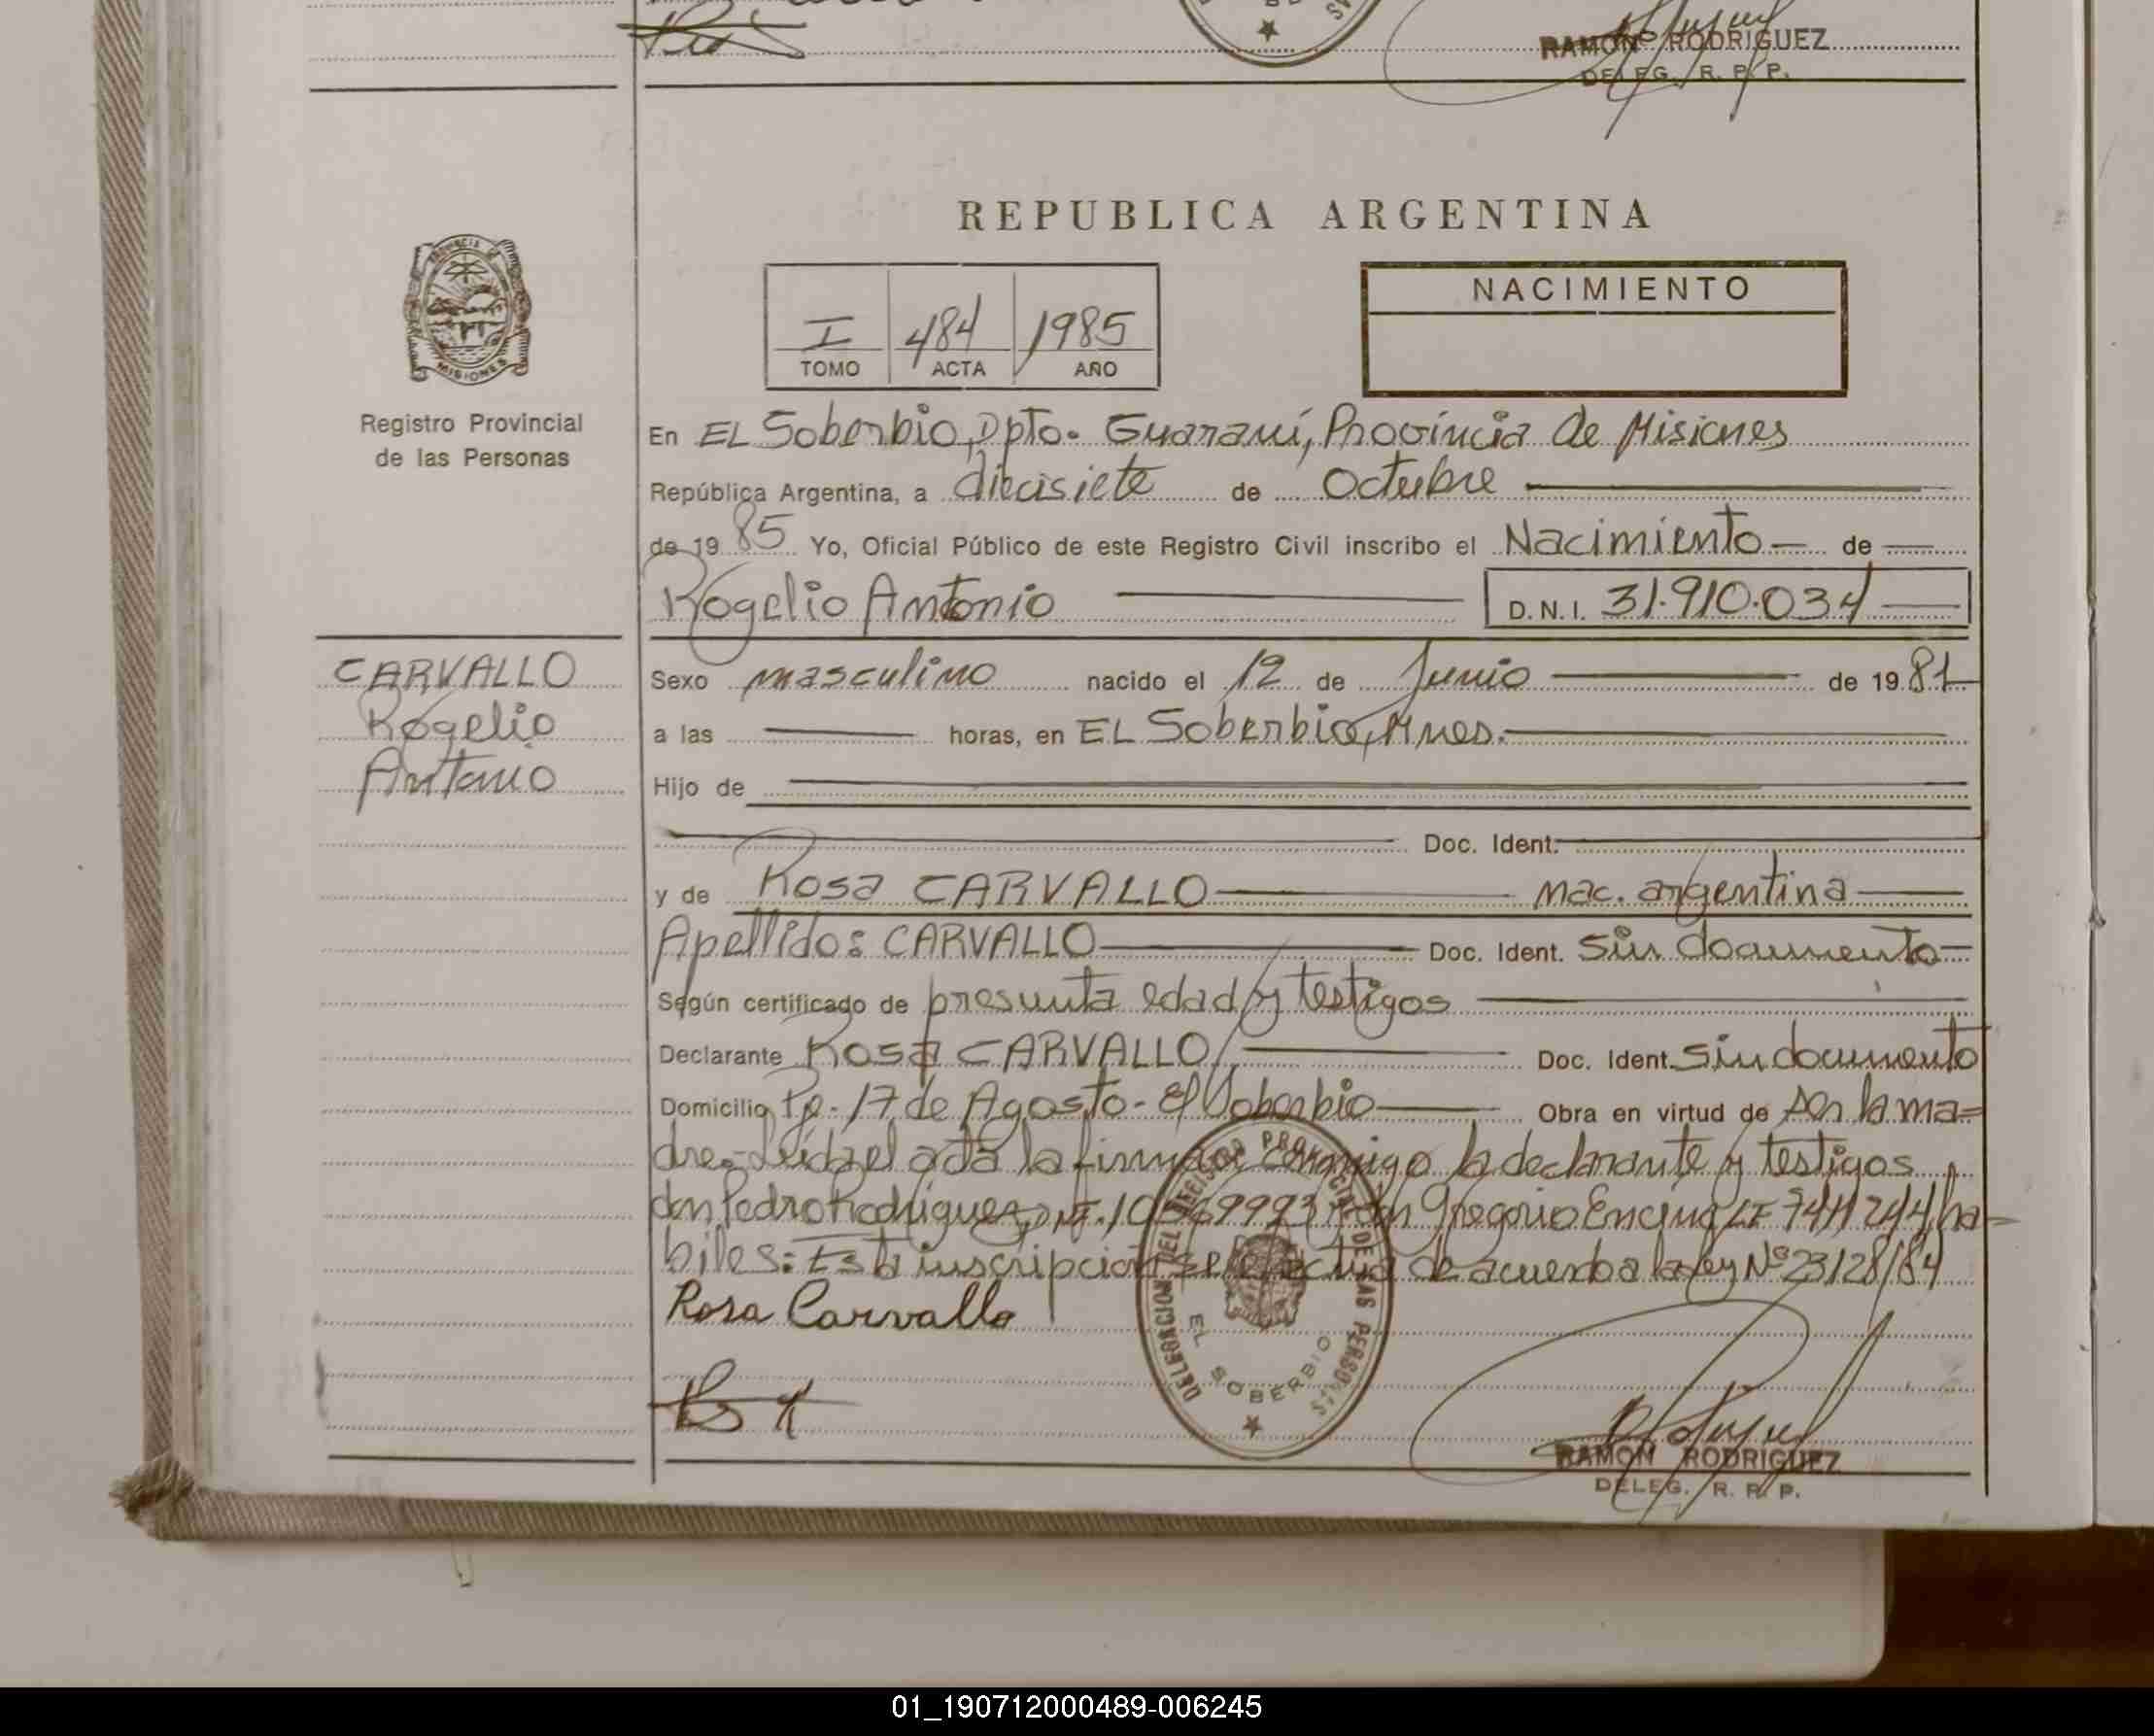 RAMON RODRIGUEZ
DELEG. R. P. P.
REPUBLICA ARGENTINA
PROVINCIA DE
MISIONES
Registro Provincial
de las Personas
I 484 1985
TOMO ACTA AÑO
NACIMIENTO
En EL Soberbio, Dpto. Guaraní, Provincia de Misiones
República Argentina, a diecisiete de Octubre
de 19 85 Yo, Oficial Público de este Registro Civil inscribo el Nacimiento de
Rogelio Antonio D.N.I. 31.910.034
CARVALLO
Rogelio
Antonio
Sexo masculino nacido el 12 de Junio de 19 81
a las horas, en EL Soberbio, Mnes.
Hijo de
Doc. Ident.
y de Rosa CARVALLO nac. argentina
Apellido: CARVALLO Doc. Ident. Sin documento
Según certificado de presunta edad y testigos
Declarante Rosa CARVALLO Doc. Ident. Sin documento
Domicilio Pje. 17 de Agosto - El Soberbio Obra en virtud de ser la ma=
dre.- Leída el acta la firman conmigo la declarante y testigos
don Pedro Rodriguez, don Gregorio Encina LE 7411244, ha-
biles: Esta inscripción se efectúa de acuerdo a la ley Nº 23128/84
Rosa Carvallo
DELEGACION DEL REGISTRO PROVINCIAL DE LAS PERSONAS
EL SOBERBIO
RAMON RODRIGUEZ
DELEG. R. P. P.
01_190712000489-006245